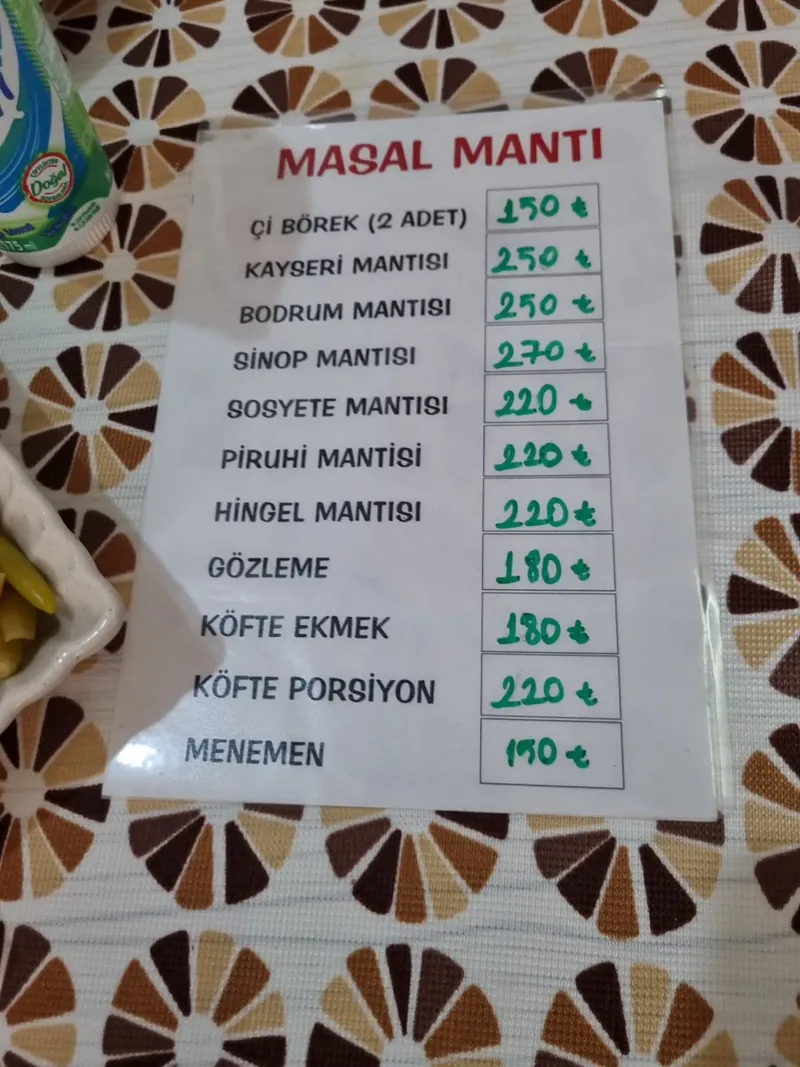 Doğal
MASAL MANTI
Çİ BÖREK (2 ADET) 150 ₺
KAYSERİ MANTISI 250 ₺
BODRUM MANTISI 250 ₺
SİNOP MANTISI 270 ₺
SOSYETE MANTISI 220 ₺
PİRUHİ MANTİSİ 220 ₺
HİNGEL MANTISI 220 ₺
GÖZLEME 180 ₺
KÖFTE EKMEK 180 ₺
KÖFTE PORSİYON 220 ₺
MENEMEN 150 ₺